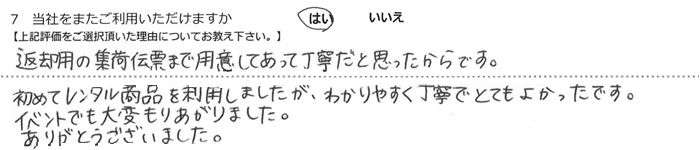 7 当社をまたご利用いただけますか はい いいえ
【上記評価をご選択頂いた理由についてお教え下さい。】
返却用の集荷伝票まで用意してあって丁寧だと思ったからです。
初めてレンタル商品を利用しましたが、わかりやすく丁寧でとてもよかったです。
イベントでも大変もりあがりました。
ありがとうございました。